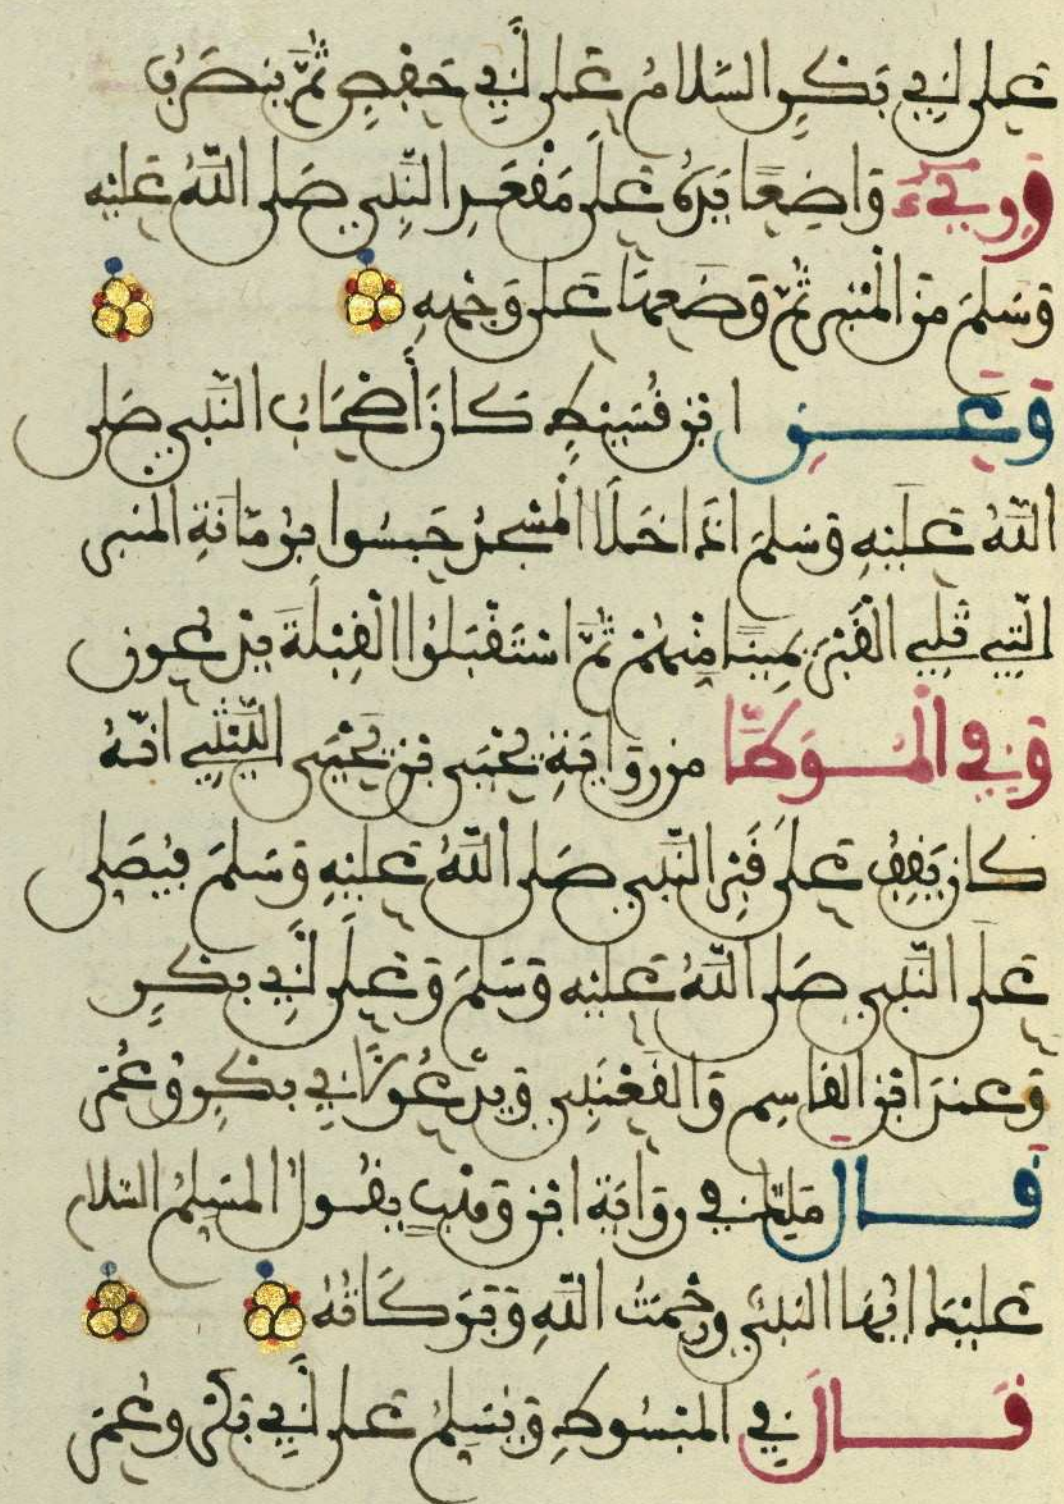 على أَبِي بَكْرٍ السَّلَامُ عَلَى أَبِي حَفْصٍ ثُمَّ ينصَرِف
وروِيَ وَاضِعًا يَدَهُ عَلَى مَقْعَدِ النَّبِيِّ صَلى اللَّهُ عَلَيْهِ
وَسَلمَ مِنَ الْمِنْبَرِ ثُمَّ وَضَعَهَا عَلَى وَجْهِهِ
وَعَنِ ابْنِ قُسَيْطٍ كَانَ أَصْحَابُ النَّبِي صَلى
اللَّهُ عَلَيْهِ وَسَلمَ اذَا خَلَا الْمَسْجِدُ حَبسُوا رُمَّانَةِ المنبر
الَّتِي تَلِي الْقَبْرَ بِمِيَامِنِهِمْ ثُمَّ اسْتَقْبَلُوا الْقِبْلَةَ يَدْعون
وَفِي الْمُوَطَّا من رِوَايَةِ يَحْيَى بْنِ يَحْيَى اللَّيْثِي انَّهُ
كان يَقِفُ عَلَى قَبْرِ النَّبِي صَلى اللَّهُ عَلَيْهِ وَسَلمَ فيُصَلِي
عَلَى النَّبِي صَلى اللَّهُ عَلَيْهِ وَسَلمَ وَعَلَى أَبِي بكْرٍ
وَعِنْدَ ابْنِ القَاسِمِ وَالقَعْنَبِي وَيَدْعُو لِأَبِي بكْرٍ وَعُمَر
قَال مَالِك فِي رِوَايَةِ ابْنِ وَهْبٍ يقُولُ المسَلِمُ السَّلام
عَلَيْكَ ايُّهَا النبيُّ ورَحْمَتُ اللَّهِ وَبَرَكَاتُهُ
قَالَ فِي المَبْسُوطِ وَيُسَلِمُ عَلَى أَبِي بَكْرٍ وعُمَر